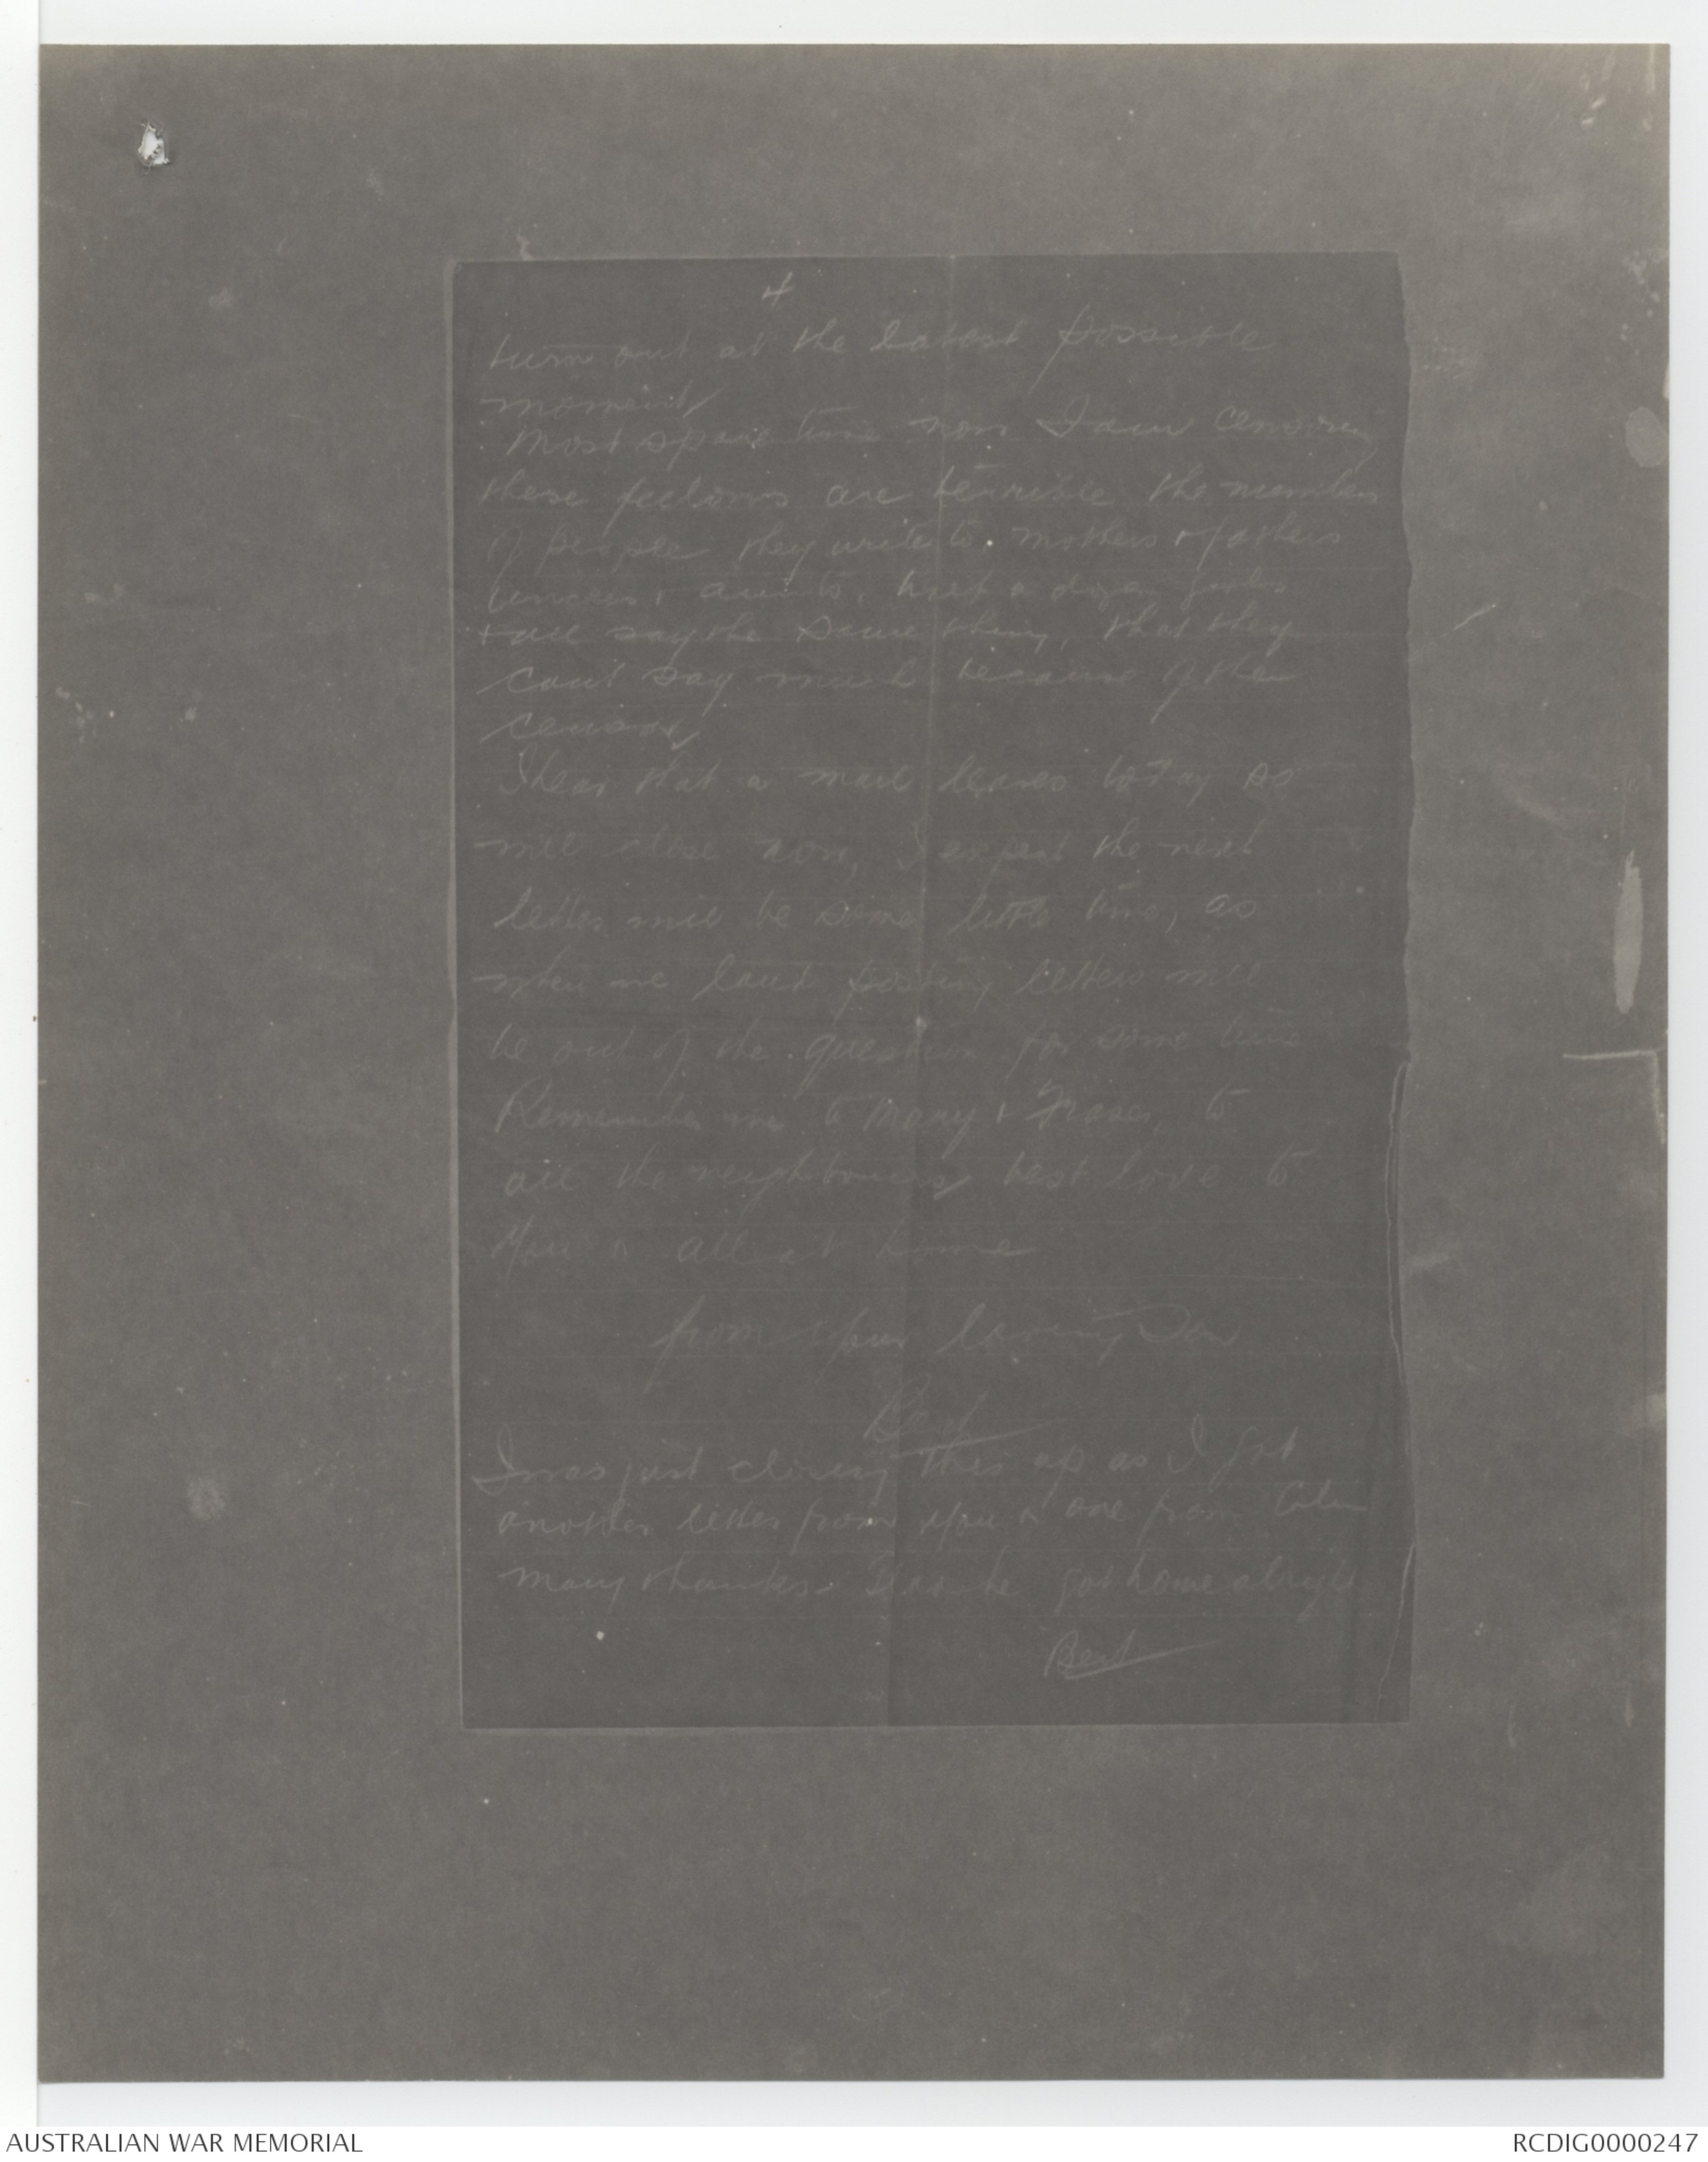 4
turn out at the latest possible
moment
Most spare time now I am censoring
these fellows are terrible the number
of people they write to. mothers & fathers
uncles & aunts, half a dozen girls
& all say the same thing, that they
can't say much because of the
censor,
I hear that a mail leaves today so
will close now, I expect the next
letter will be some little time, as
when we land posting letters will
be out of the question for some time
Remember me to Mary & Fraser, to
all the neighbours best love to
you & all at home
from your loving Son
Bert
I was just closing this up as I got
another letter from you & one from Colin
many thanks. got home alright
Bert
AUSTRALIAN WAR MEMORIAL
RCDIG0000247